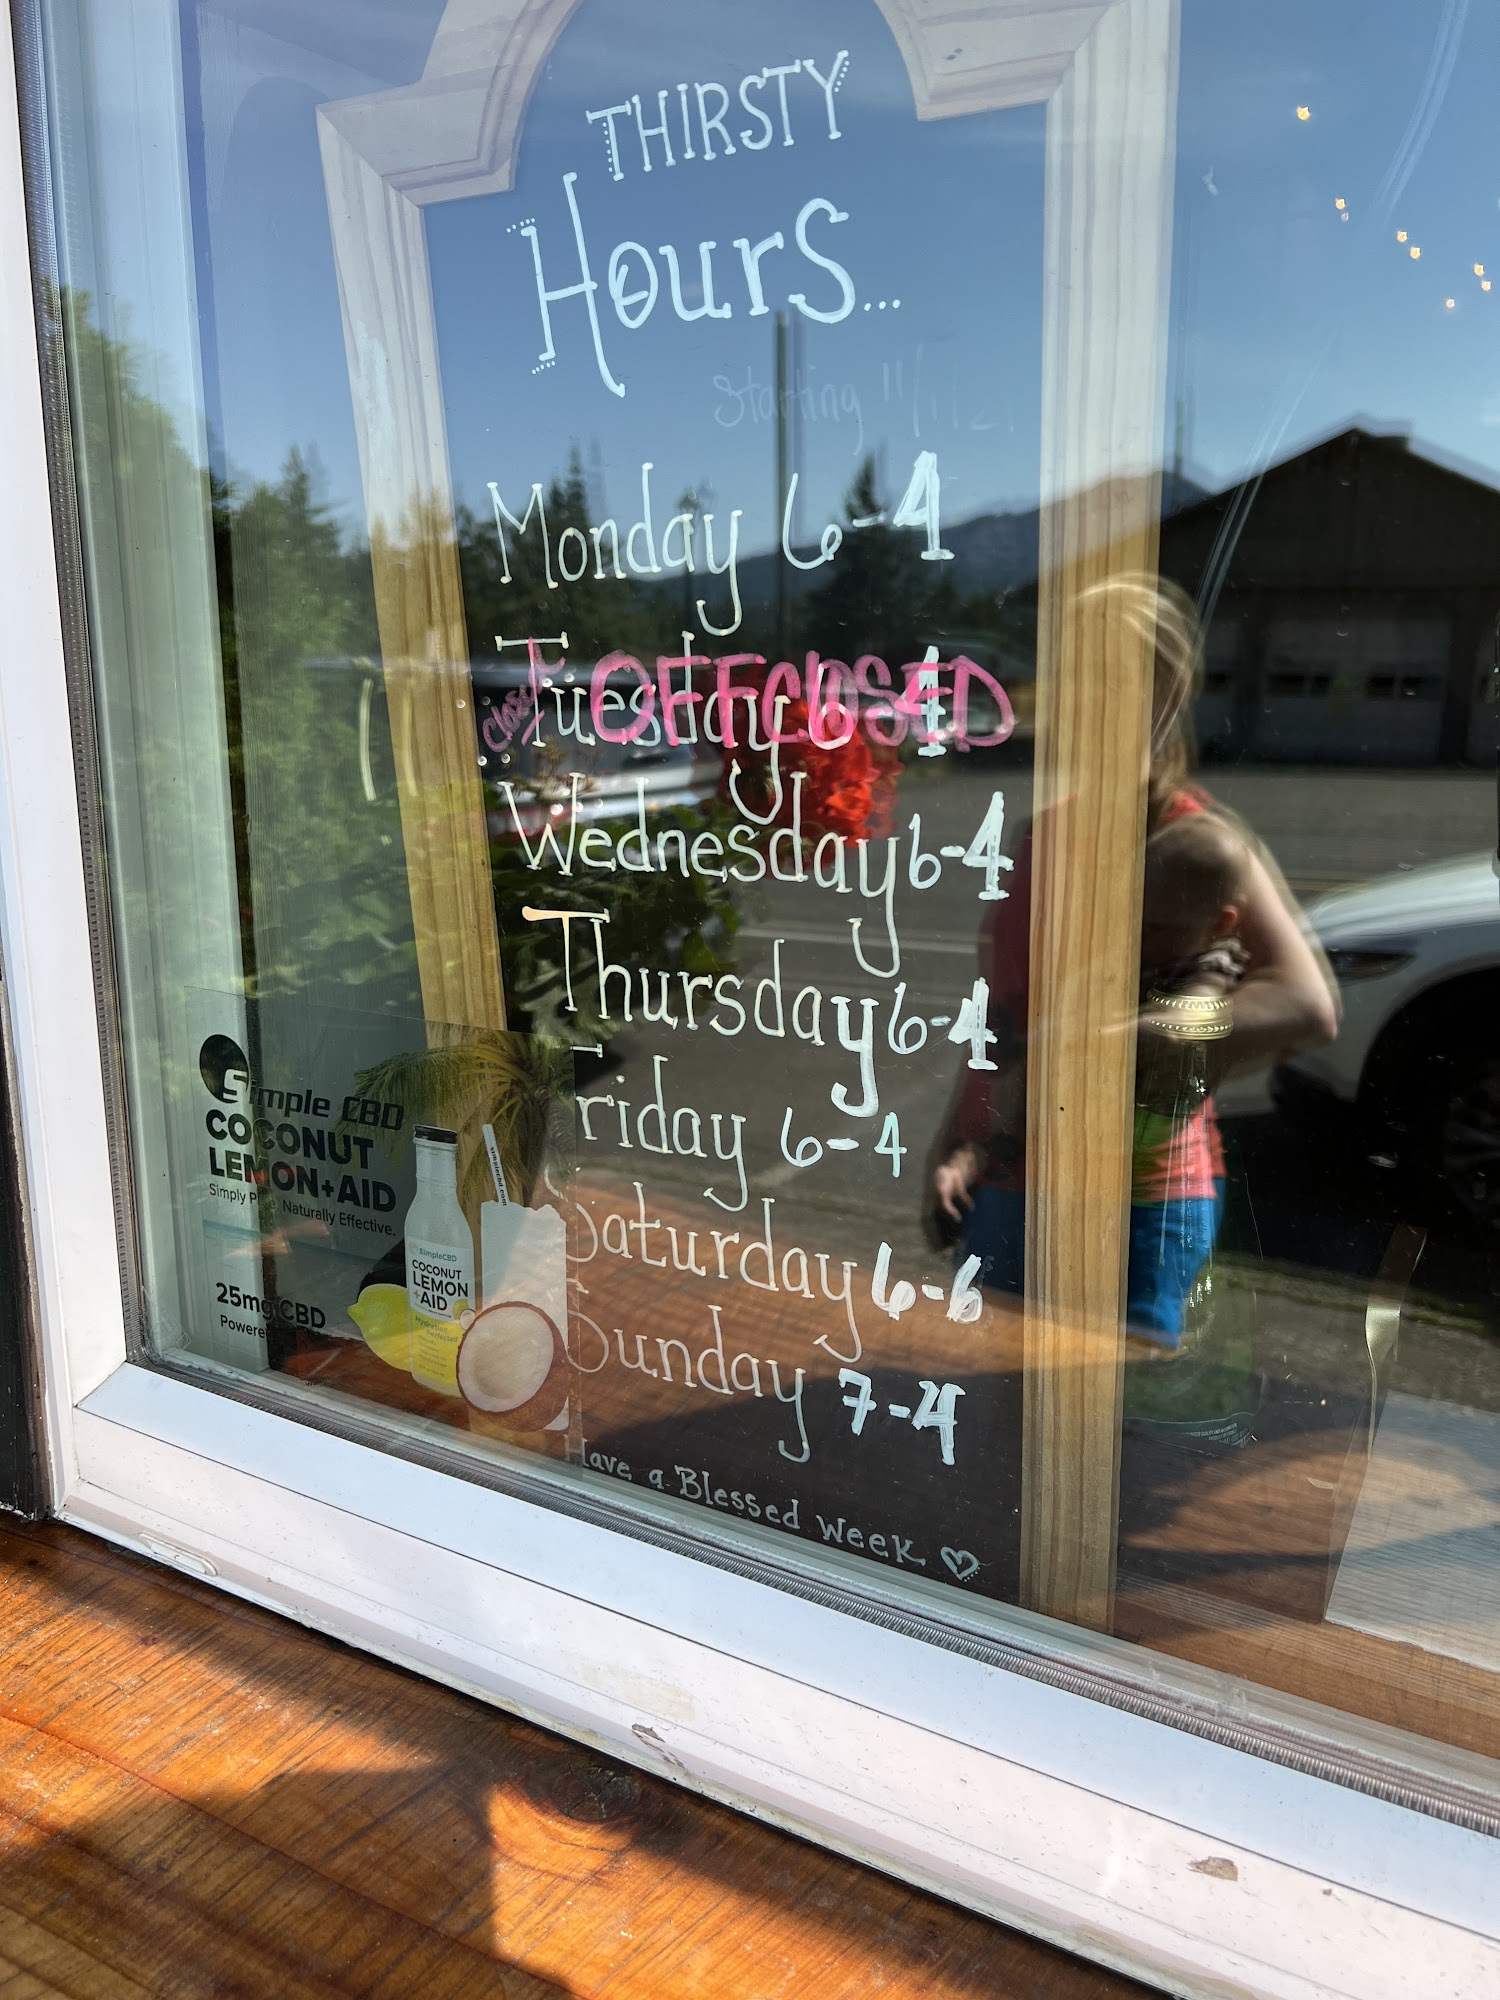 THIRSTY
Hours...
Starting 11/1/2
Monday 6-4
Tuesday 6-4
closed OFF CLOSED
Wednesday 6-4
Thursday 6-4
Friday 6-4
Saturday 6-6
Sunday 7-4
Have a Blessed week
Simple CBD
COCONUT
LEMON+AID
Naturally Effective.
25mg CBD
simplecbd.com
SimpleCBD
COCONUT
LEMON
+AID
Hydration
Perfected